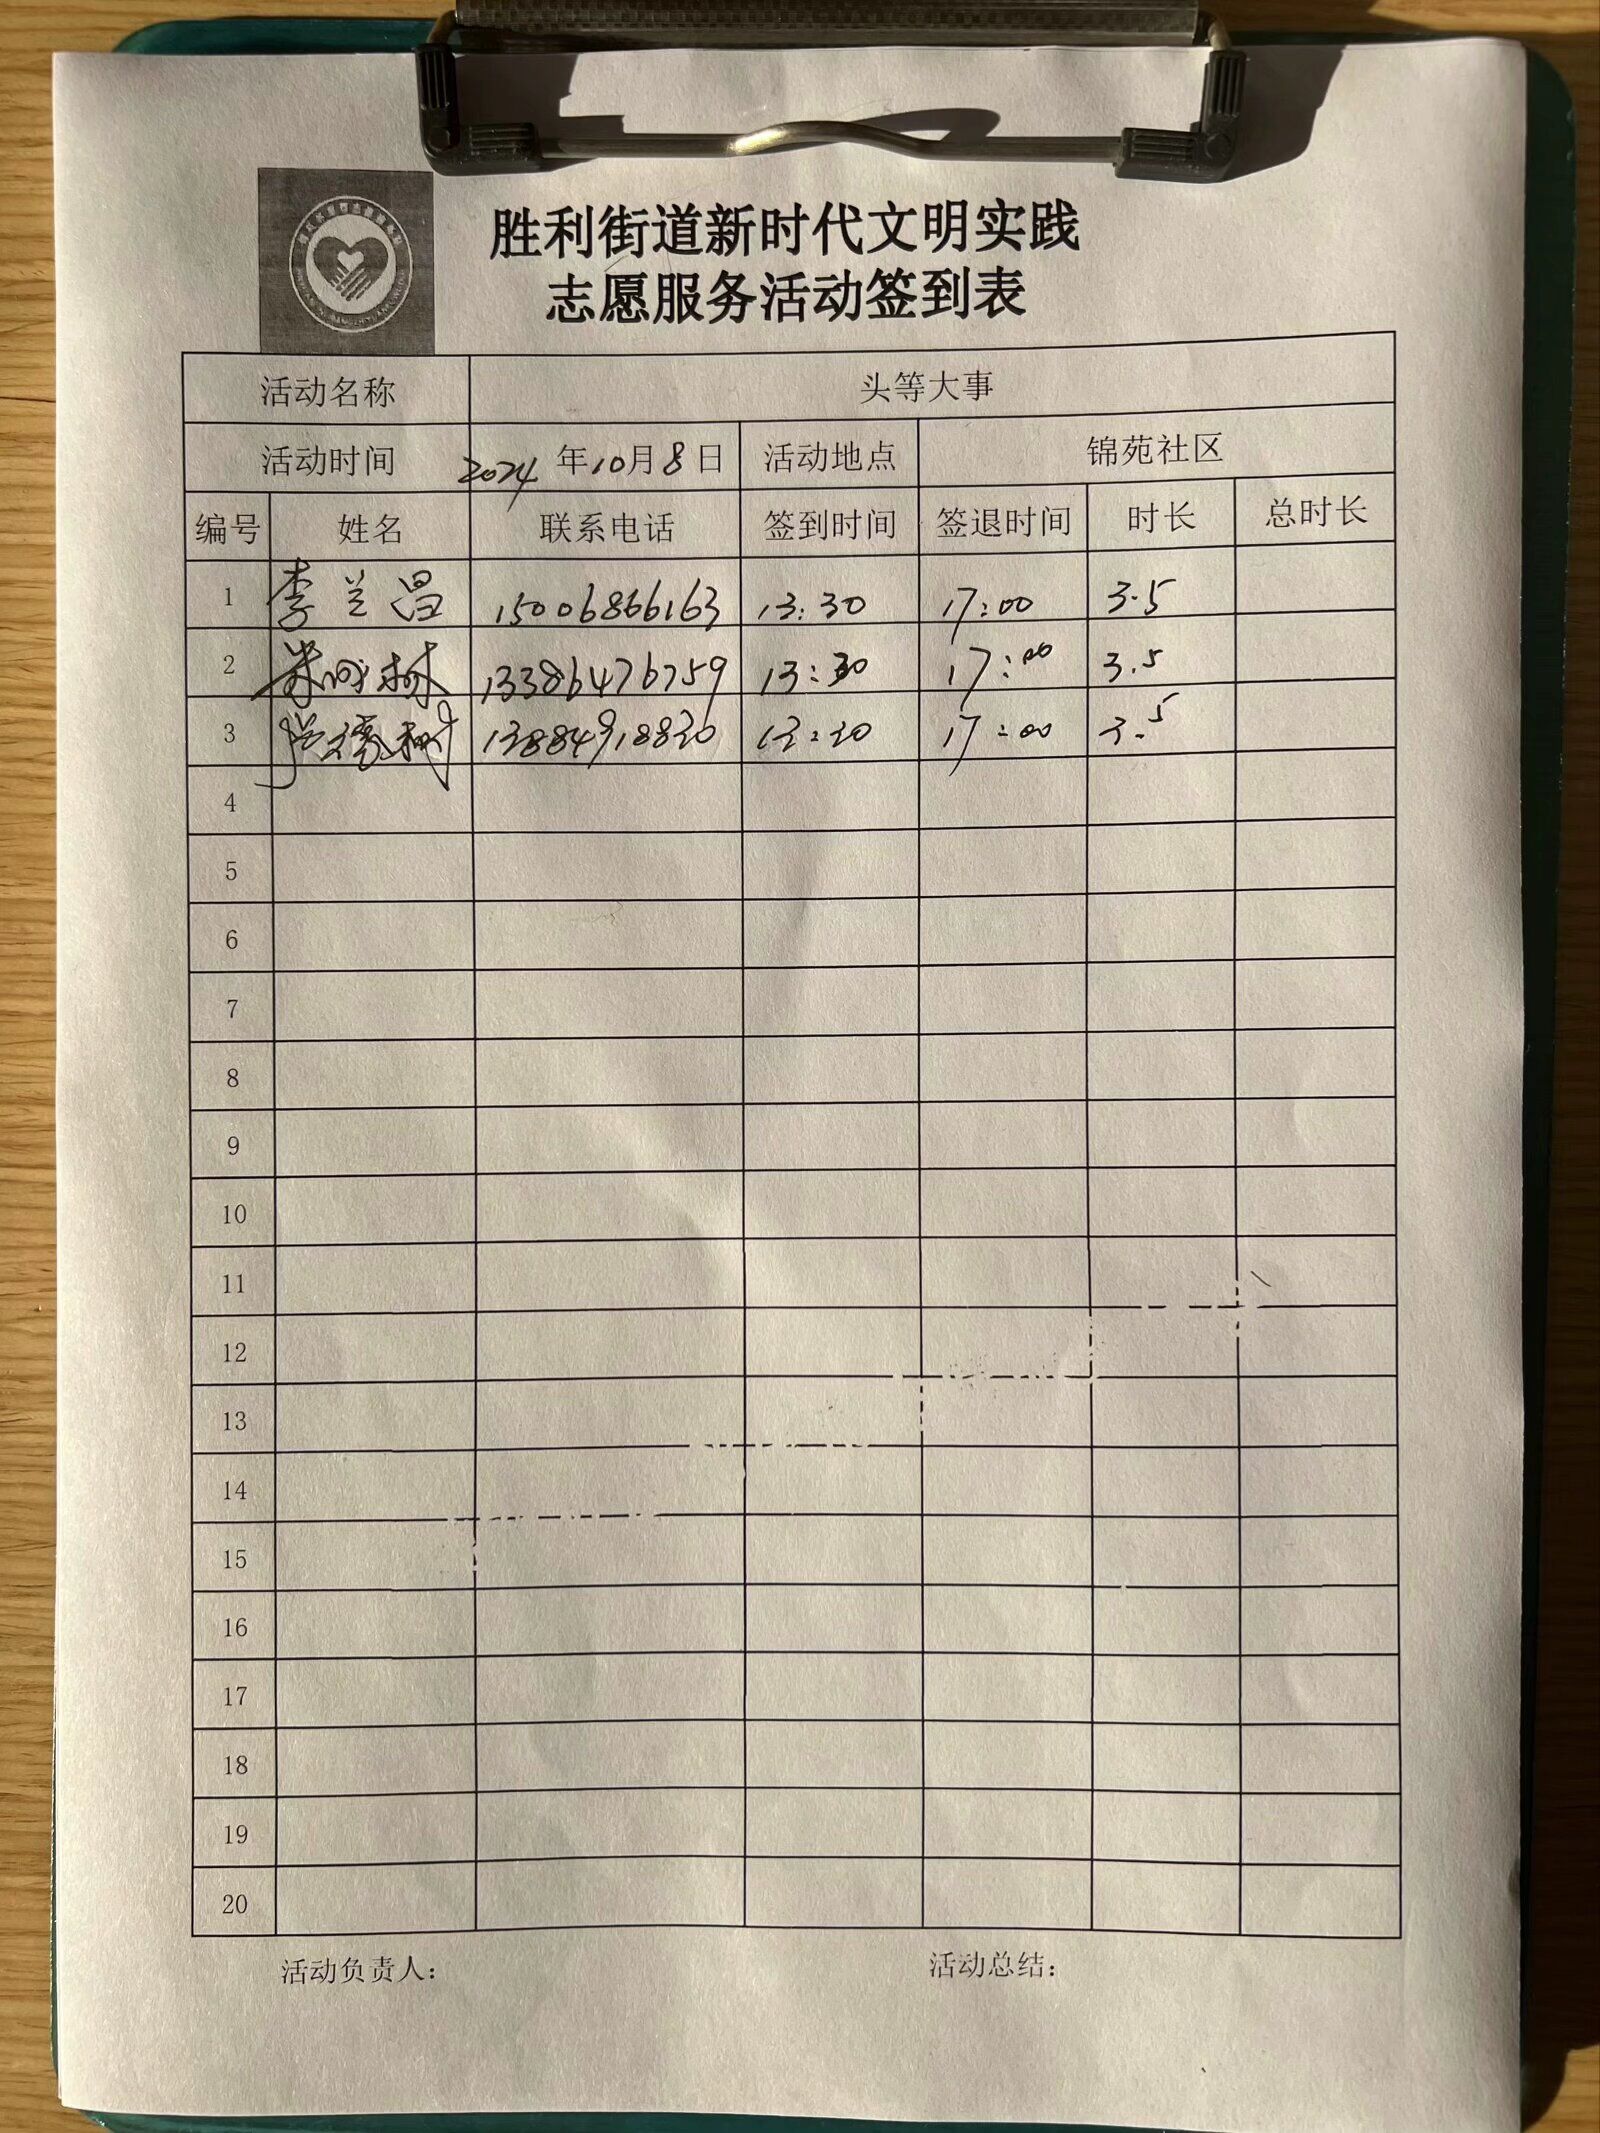 胜利街道新时代文明实践
志愿服务活动签到表
活动名称 头等大事
活动时间 2024年10月8日 活动地点 锦苑社区
编号 姓名 联系电话 签到时间 签退时间 时长 总时长
1 李兰昌 15006866163 13:30 17:00 3.5
2 13386476759 13:30 17:00 3.5
3 13884918830 13:30 17:00 3.5
4
5
6
7
8
9
10
11
12
13
14
15
16
17
18
19
20
活动负责人： 活动总结：